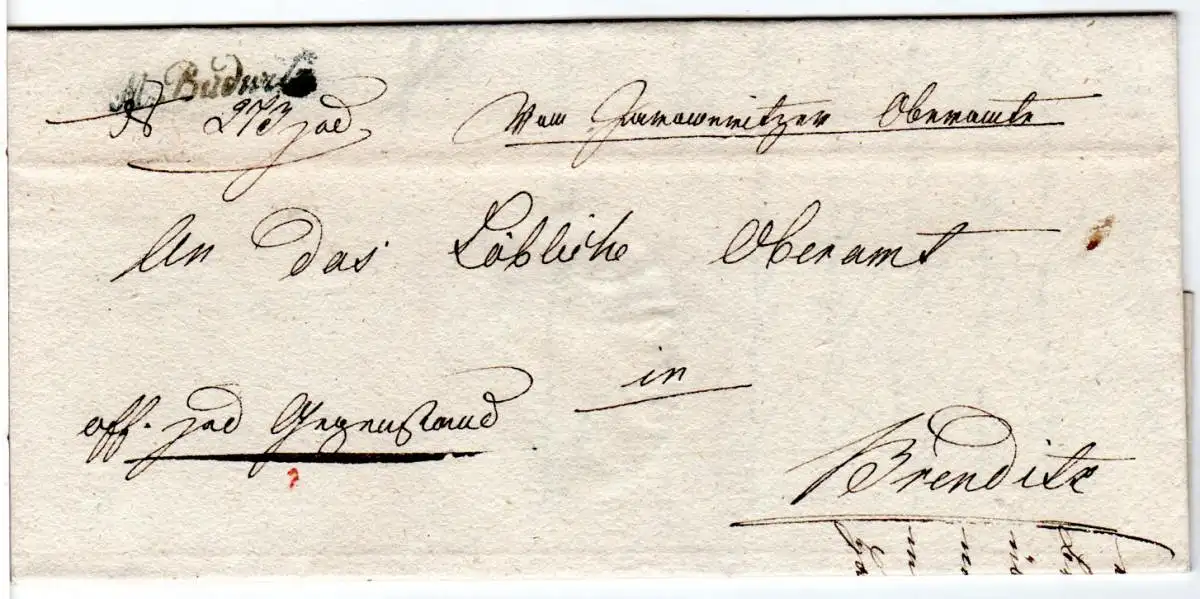 M. Budwitz
N 273 jud Vom Jaromeritzer Oberamte
An das Löbliche Oberamt
in
off. jud Gegenstand
Brenditz